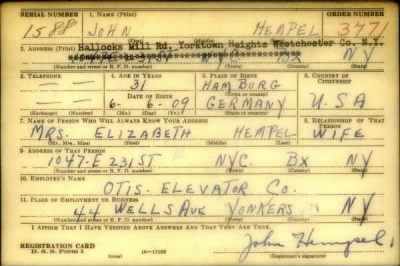 SERIAL NUMBER 1. NAME (Print) ORDER NUMBER
1588 JOHN HEMPEL 3771
(First) (Middle) (Last)
2. ADDRESS (Print) Hallocks Mill Rd. Yorktown Heights Westchester Co. N.Y.
E 231 ST NYC. BX NY
(Number and street or R. F. D. number) (Town) (County) (State)
3. TELEPHONE 4. AGE IN YEARS 5. PLACE OF BIRTH 6. COUNTRY OF CITIZENSHIP
— — 31 HAMBURG
DATE OF BIRTH (Town or county)
— — 6- 6- 09 GERMANY U.S.A
(Exchange) (Number) (Mo.) (Day) (Yr.) (State or country)
7. NAME OF PERSON WHO WILL ALWAYS KNOW YOUR ADDRESS 8. RELATIONSHIP OF THAT PERSON
MRS. ELIZABETH HEMPEL WIFE
(Mr., Mrs., Miss) (First) (Middle) (Last)
9. ADDRESS OF THAT PERSON
1047-E 231 ST NYC. BX NY
(Number and street or R. F. D. number) (Town) (County) (State)
10. EMPLOYER'S NAME
OTIS. ELEVATOR Co.
11. PLACE OF EMPLOYMENT OR BUSINESS
44 WELLS AVE YONKERS NY
(Number and street or R. F. D. number) (Town) (County) (State)
I AFFIRM THAT I HAVE VERIFIED ABOVE ANSWERS AND THAT THEY ARE TRUE.
REGISTRATION CARD
D. S. S. Form 1 (over) John Hempel.